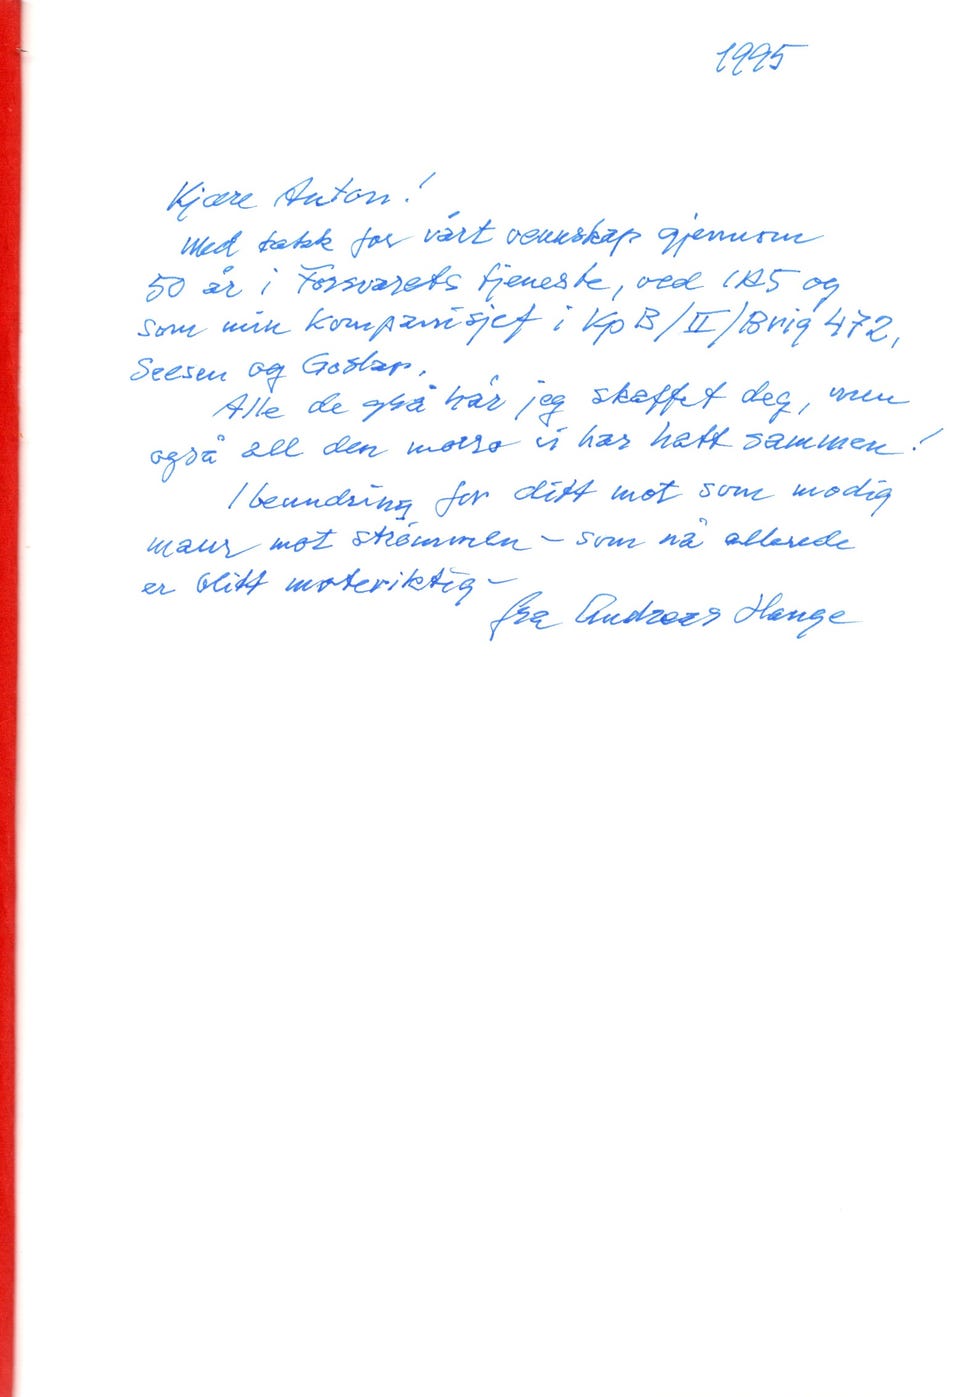 1995
Kjære Anton!
Med takk for vårt vennskap gjennom
50 år i Forsvarets tjeneste, ved IR5 og
som min kompanisjef i Kp B/II/Brig 472,
Seesen og Goslar.
Alle de grå hår jeg skaffet deg, men
også all den morro vi har hatt sammen!
I beundring for ditt mot som modig
maur mot strømmen – som nå allerede
er blitt moteriktig –
fra Andreas Hauge